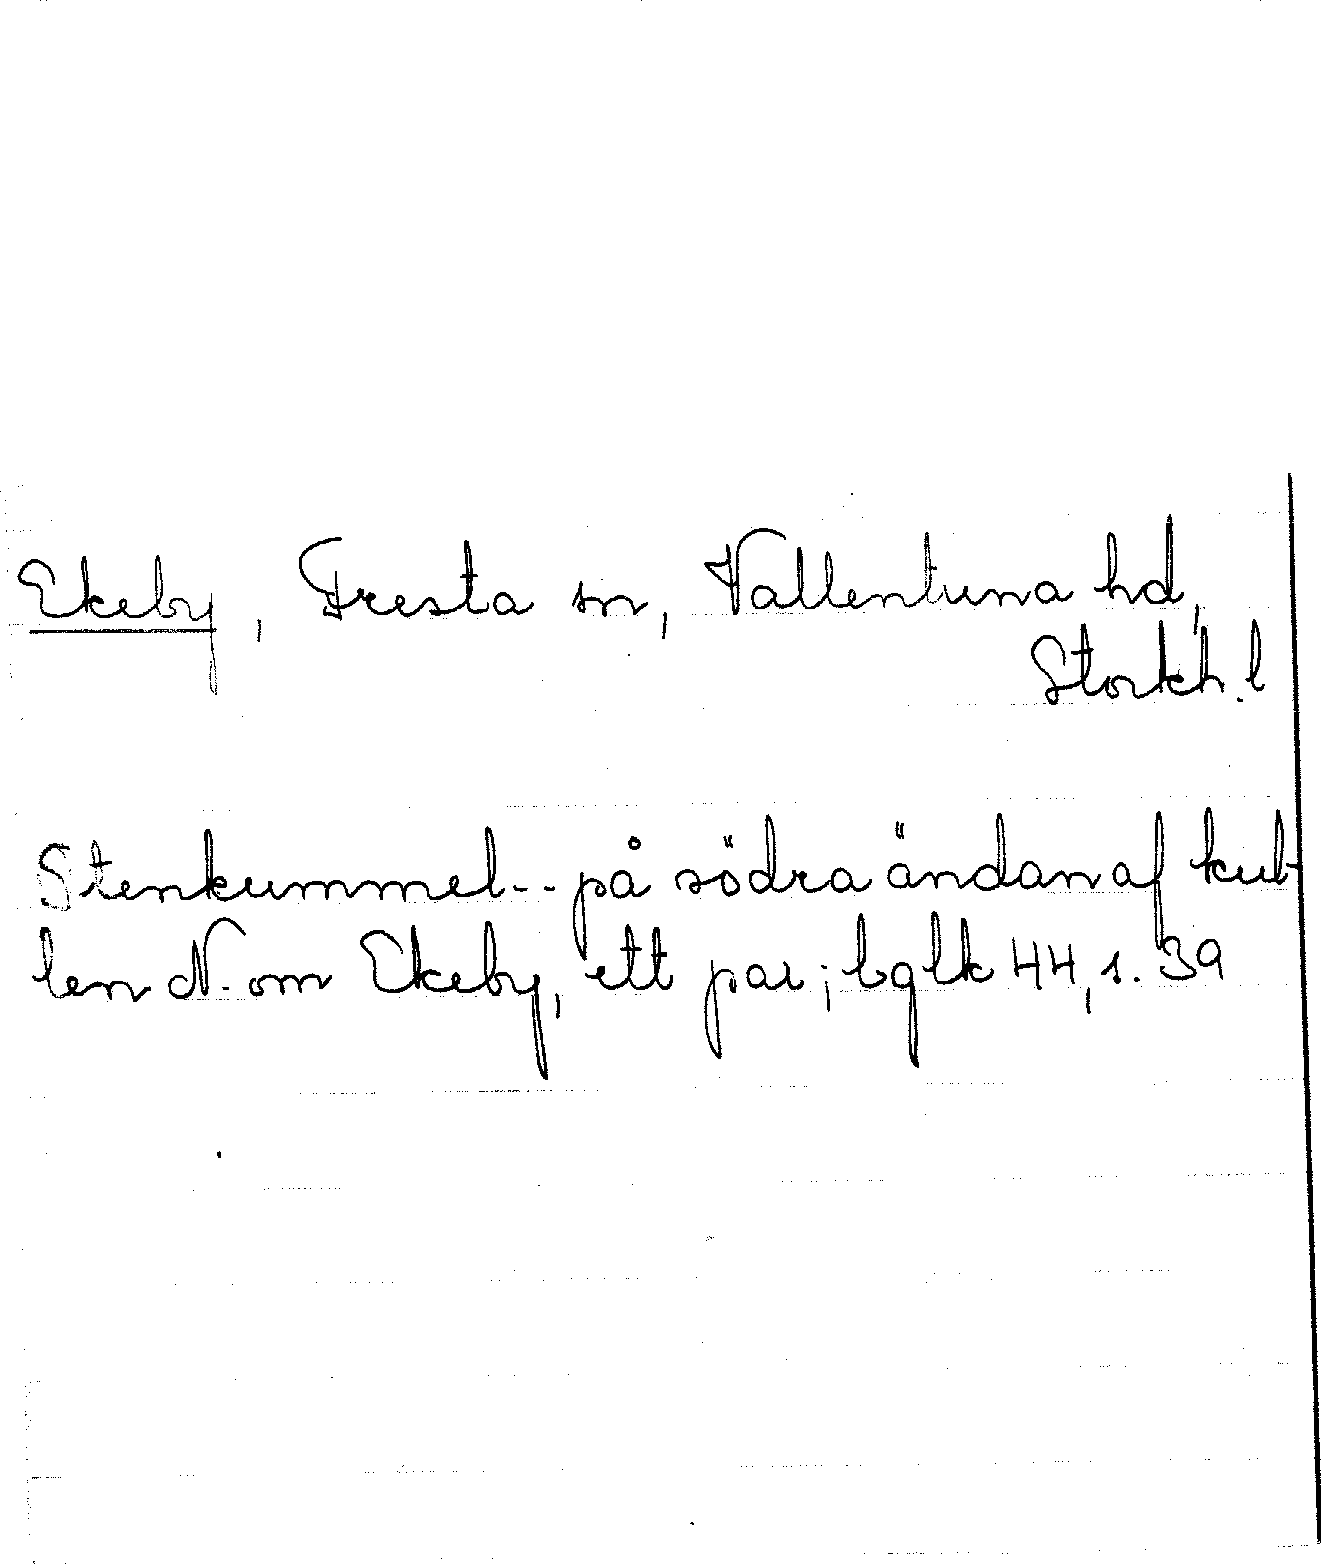 Ekeby, Fresta sn, Vallentuna hd,
Stockh. l
Stenkummel - - på södra ändan af kul-
len N. om Ekeby, ett par; bglk 44, s. 39